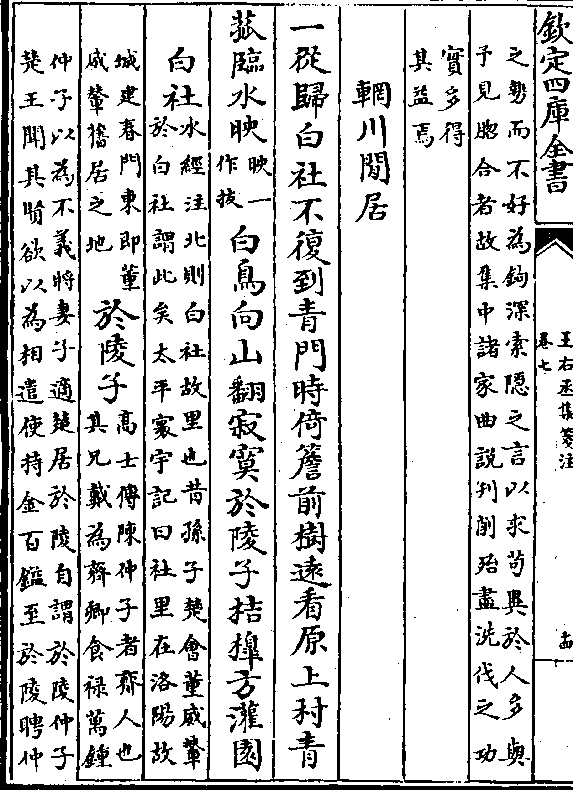 欽定四庫全書
王右丞集箋注
卷七
十四
之勢而不好為鉤深索隱之言以求苟異於人多與
予見脗合者故集中諸家曲說刋削殆盡洗伐之功
實多得
其益焉
輞川閒居
一從歸白社不復到青門時倚簷前樹逺看原上村青
菰臨水映映一作拔白鳥向山翻寂寞於陵子桔槔方灌園
白社水經注北則白社故里也昔孫子楚會董威輦
於白社謂此矣太平寰宇記曰社里在洛陽故
城建春門東即董
威輦舊居之地
於陵子髙士傳陳仲子者齊人也
其兄戴為齊卿食祿萬鍾
仲子以為不義將妻子適楚居於陵自謂於陵仲子
楚王聞其賢欲以為相遣使持金百鎰至於陵聘仲